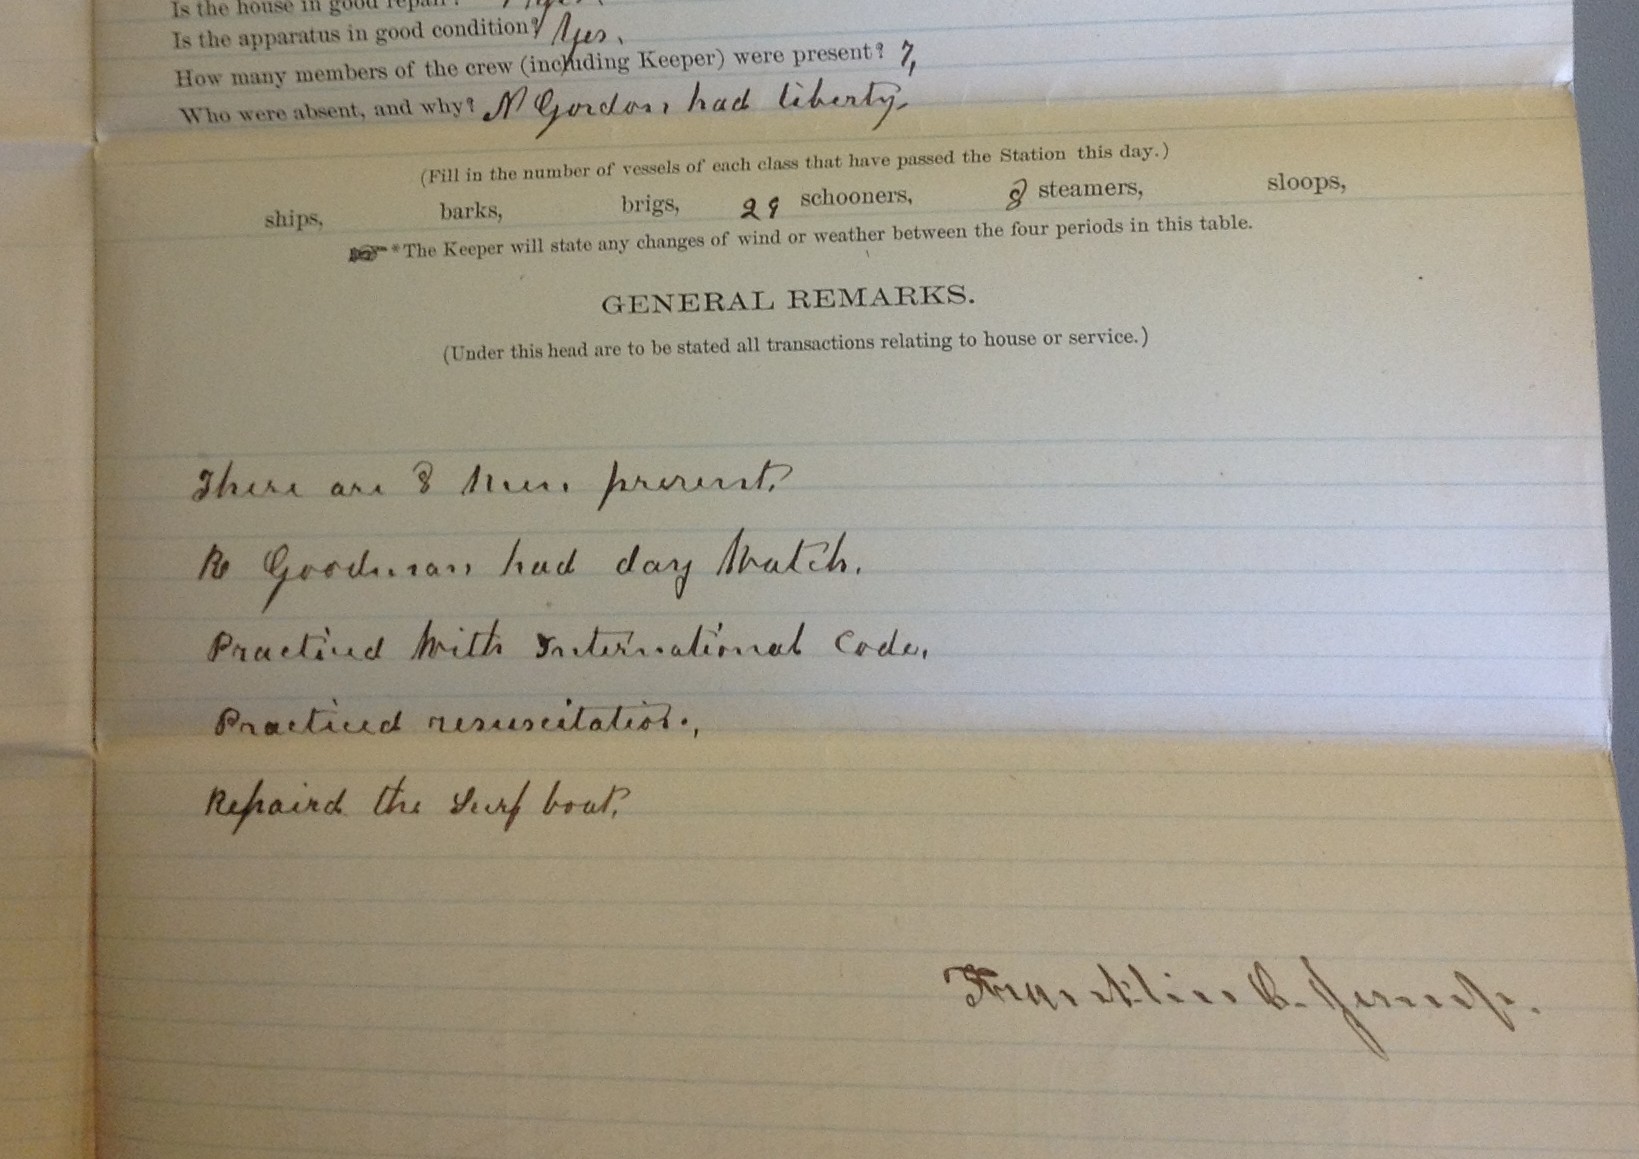 Is the house in good repair?
Is the apparatus in good condition? Yes.
How many members of the crew (including Keeper) were present? 7,
Who were absent, and why? N Gordon had liberty,
(Fill in the number of vessels of each class that have passed the Station this day.)
ships, barks, brigs, 29 schooners, 8 steamers, sloops,
☞*The Keeper will state any changes of wind or weather between the four periods in this table.
GENERAL REMARKS.
(Under this head are to be stated all transactions relating to house or service.)
There are 8 Men present,
Goodman had day Watch.
Practiced With International Code,
Practiced resuscitation,
Repaird the Surf boat,
Franklin C. Jessup.